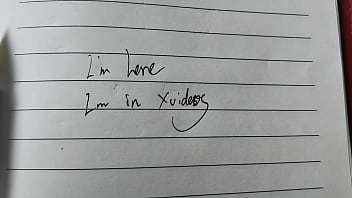 I'm here
I'm in xvideos